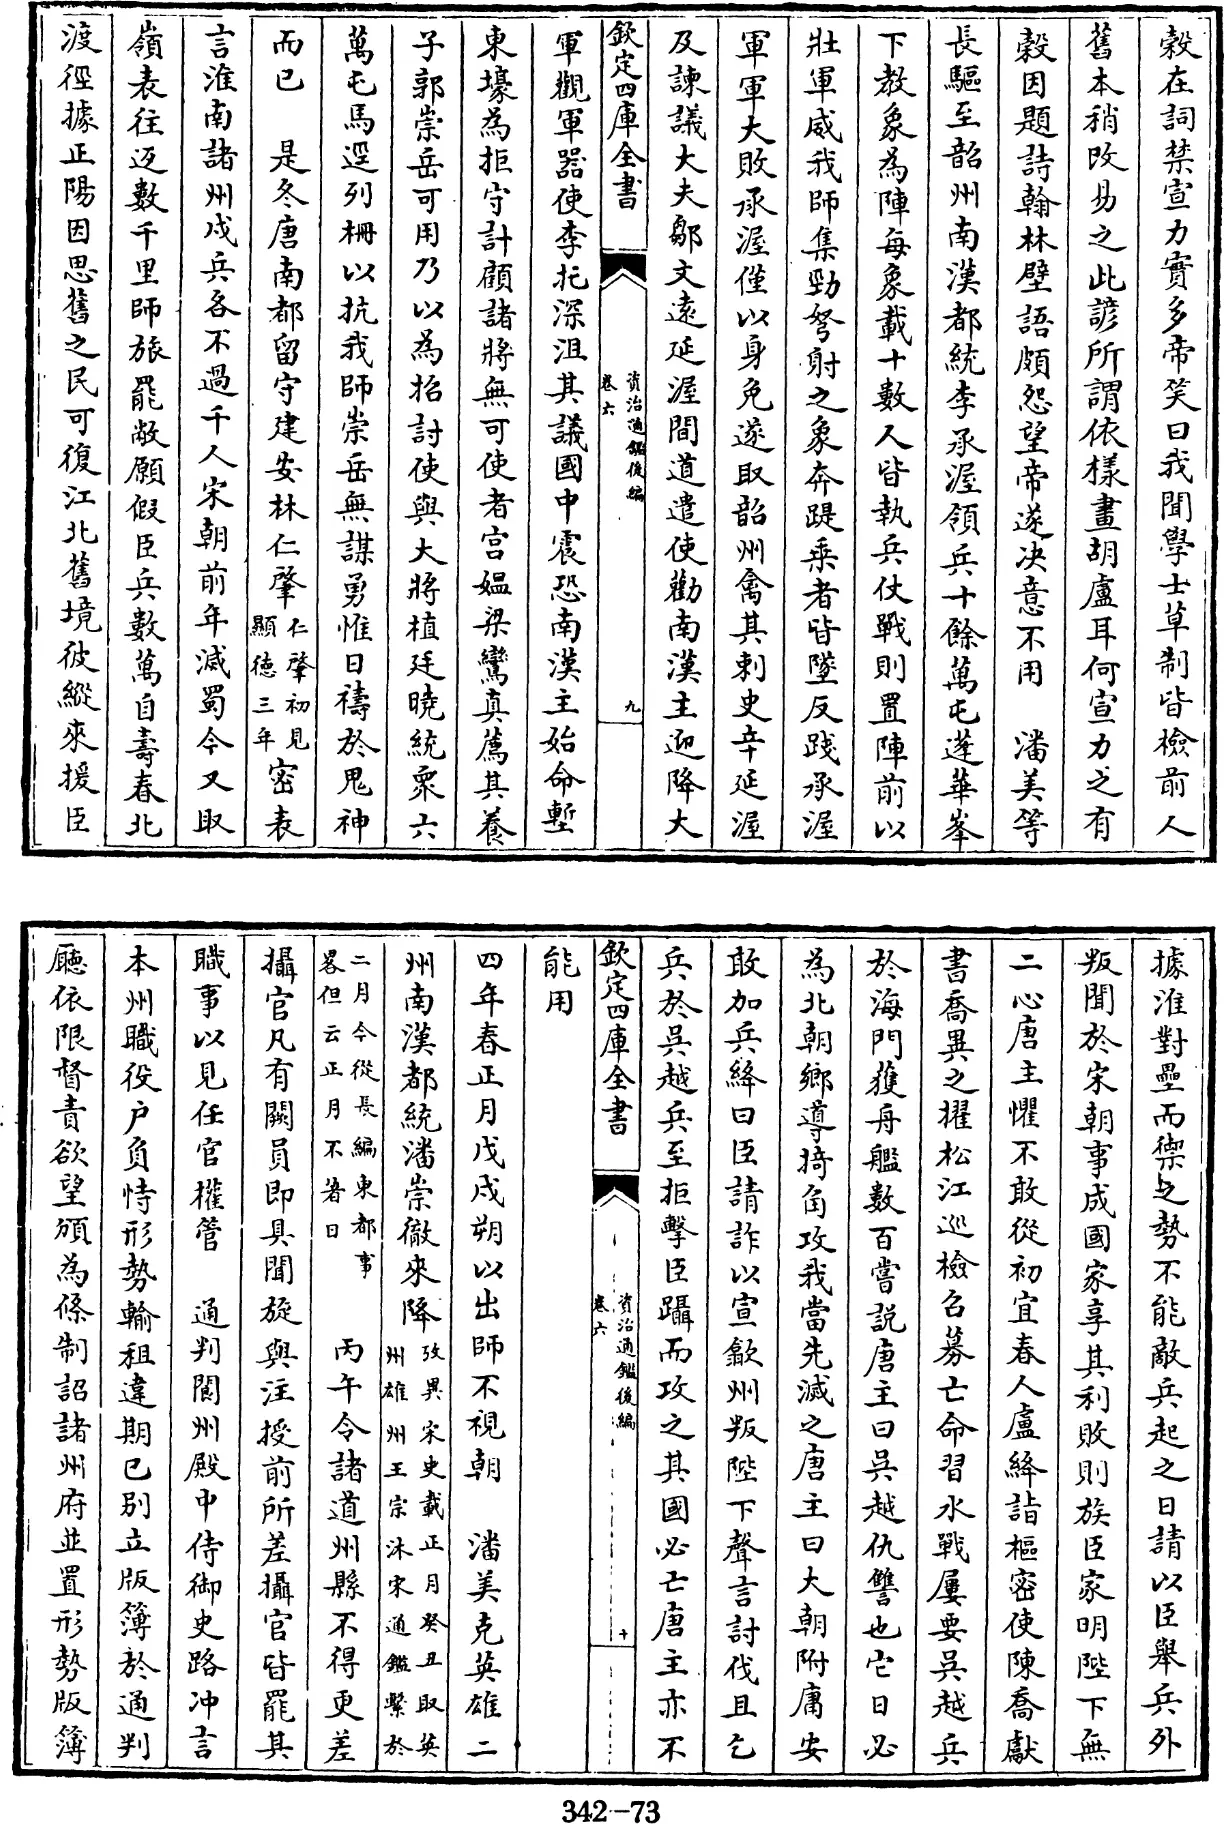 穀在詞禁宣力實多帝笑曰我聞學士草制皆檢前人
舊本稍改易之此諺所謂依樣畫胡盧耳何宣力之有
穀因題詩翰林壁語頗怨望帝遂决意不用　潘美等
長驅至韶州南漢都統李承渥領兵十餘萬屯蓮華峯
下教象為陣每象載十數人皆執兵仗戰則置陣前以
壯軍威我師集勁弩射之象奔踶乘者皆墜反踐承渥
軍軍大敗承渥僅以身免遂取韶州禽其刺史辛延渥
及諫議大夫鄒文遠延渥間道遣使勸南漢主迎降大
欽定四庫全書
資治通鑑後編
卷六
九
軍觀軍器使李托深沮其議國中震恐南漢主始命塹
東壕為拒守計顧諸將無可使者宮媼梁鸞真薦其養
子郭崇岳可用乃以為招討使與大將植廷曉統衆六
萬屯馬逕列柵以抗我師崇岳無謀勇惟日禱於鬼神
而已　是冬唐南都留守建安林仁肇
仁肇初見
顯德三年
密表
言淮南諸州戍兵各不過千人宋朝前年滅蜀今又取
嶺表往返數千里師旅罷敝願假臣兵數萬自壽春北
渡徑據正陽因思舊之民可復江北舊境彼縱來援臣
據淮對壘而禦之勢不能敵兵起之日請以臣舉兵外
叛聞於宋朝事成國家享其利敗則族臣家明陛下無
二心唐主懼不敢從初宜春人盧絳詣樞密使陳喬獻
書喬異之擢松江巡檢召募亡命習水戰屢要吳越兵
於海門獲舟艦數百嘗説唐主曰吳越仇讐也它日必
為北朝鄉導掎角攻我當先滅之唐主曰大朝附庸安
敢加兵絳曰臣請詐以宣歙州叛陛下聲言討伐且乞
兵於吳越兵至拒擊臣躡而攻之其國必亡唐主亦不
欽定四庫全書
資治通鑑後編
卷六
十
能用
四年春正月戊戌朔以出師不視朝　潘美克英雄二
州南漢都統潘崇徹來降
攷異宋史載正月癸丑取英
州雄州王宗沐宋通鑑繫於
二月今從長編東都事
畧但云正月不著日
丙午令諸道州縣不得更差
攝官凡有闕員即具聞旋與注授前所差攝官皆罷其
職事以見任官權管　通判閬州殿中侍御史路冲言
本州職役户負恃形勢輸租違期已别立版簿於通判
廳依限督責欲望頒為條制詔諸州府並置形勢版簿
342-73